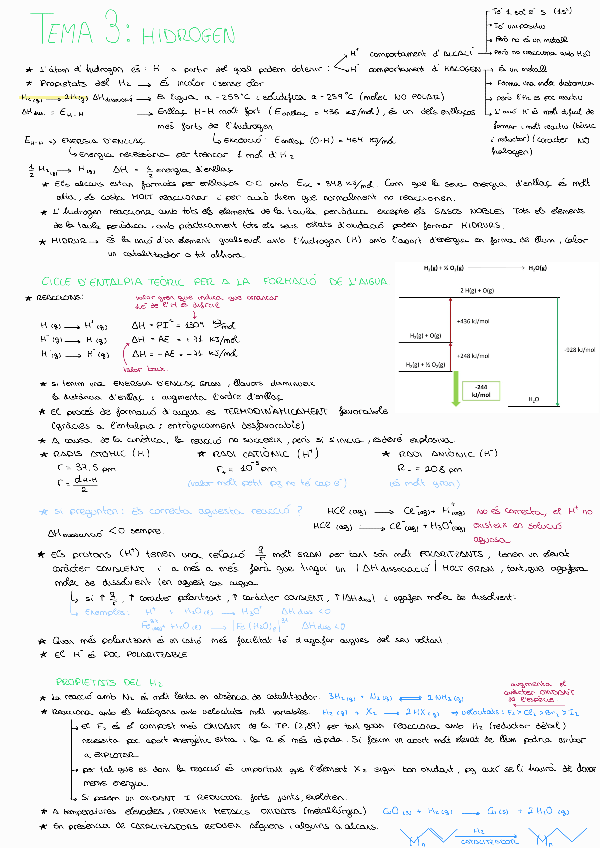 TEMA 3: HIDROGEN
Té 1 sol e⁻ s (1s¹)
Té un positiu
Però no és un metall
H⁺ comportament d'ALCALÍ → Però no reacciona amb H₂O
★ L'àtom d'hidrogen és: H a partir del qual podem obtenir:
H⁻ comportament d' HALOGEN → És un metall
★ Propietats del H₂ → És incolor i sense olor
Forma una molec. diatòmica
H₂(g) → 2H(g) ΔH dissociació → És líquid a -253ºC i solidifica a -259ºC (molec NO POLAR)
però l'H₂ és poc reactiu
ΔH diss. = E H-H → Enllaç H-H molt fort (E enllaç = 436 kJ/mol), és un dels enllaços
més forts de l'hidrogen
L'anió H⁻ és molt difícil de
formar i molt reactiu (bàsic
i reductor) (caràcter NO
halogen)
E H-H => ENERGIA D'ENLLAÇ
EXCEPCIÓ: E enllaç (O-H) = 464 kJ/mol
Energia necessària per trencar 1 mol d'H₂
½ H₂(g) → H(g) ΔH = ½ energia d'enllaç
★ Els alcans estan formats per enllaços C-C amb E C-C = 348 kJ/mol. Com que la seva energia d'enllaç és molt
alta, els costa MOLT reaccionar i per això diem que normalment no reaccionen.
★ L'hidrogen reacciona amb tots els elements de la taula periòdica excepte els GASOS NOBLES. Tots els elements
de la taula periòdica, amb pràcticament tots els seus estats d'oxidació poden formar HIDRURS.
★ HIDRUR → És la unió d'un element qualsevol amb l'hidrogen (H) amb l'aport d'energia en forma de llum, calor
un catalitzador o tot alhora.
CICLE D'ENTALPIA TEÒRIC PER A LA FORMACIÓ DE L'AIGUA
H₂(g) + ½ O₂(g) → H₂O(g)
★ REACCIONS:
valor gran que indica que arrencar
1 e⁻ de l'H és difícil
2 H(g) + O(g)
H(g) → H⁺(g) ΔH = PI = 1309 kJ/mol
+436 kJ/mol
H⁻(g) → H(g) ΔH = AE = +71 kJ/mol
H₂(g) + O(g)
H(g) → H⁻(g) ΔH = -AE = -71 kJ/mol
+248 kJ/mol
-928 kJ/mol
valor baix
H₂(g) + ½ O₂(g)
★ Si tenim una ENERGIA D'ENLLAÇ GRAN, llavors disminueix
la distància d'enllaç i augmenta l'ordre d'enllaç
-244
kJ/mol
H₂O
★ El procés de formació d'aigua és TERMODINÀMICAMENT favorable
(gràcies a l'entalpia i entròpicament desfavorable)
★ A causa de la cinètica, la reacció no succeeix, però si s'inicia, esdevé explosiva
★ RADIS ATÒMIC (H) ★ RADI CATIÒNIC (H⁺) ★ RADI ANIÒNIC (H⁻)
r = 37.5 pm r₊ = 10⁻³ pm R₋ = 208 pm
r = d H-H / 2 (valor molt petit pq no té cap e⁻) (és molt gran)
★ Si pregunten: És correcta aquesta reacció?
HCl(aq) → Cl⁻(aq) + H⁺(aq) No és correcta, el H⁺ no
HCl(aq) → Cl⁻(aq) + H₃O⁺(aq) existeix en solució
aquosa
ΔH < 0 sempre.
★ Els protons (H⁺) tenen una relació q/r molt GRAN per tant són molt POLARITZANTS, tenen un elevat
caràcter COVALENT i a més a més farà que tingui un |ΔH dissociació| MOLT GRAN, tant, que agafarà
molec de dissolvent (en aquest cas aigua.
si ↑ q/r, ↑ caràcter polaritzant, ↑ caràcter COVALENT, ↑|ΔH diss| i agafen molec de dissolvent.
Exemples: H⁺ + H₂O(l) → H₃O⁺ ΔH diss < 0
Fe³⁺ + H₂O(l) → [Fe(H₂O)₆]³⁺ ΔH diss < 0
★ Quan més polaritzant és un catió més facilitat té d'agafar aigües del seu voltant
★ El H⁻ és POC POLARITZABLE
PROPIETATS DEL H₂
augmenta el
caràcter OXIDANT
de l'espècie
★ La reacció amb N₂ és molt lenta en absència de catalitzador. 3H₂(g) + N₂(g) ⇌ 2NH₃(g)
★ Reacciona amb els halògens amb velocitats molt variables. H₂(g) + X₂ → 2HX(g) → velocitats: F₂ > Cl₂ > Br₂ > I₂
el F₂ és el compost més OXIDANT de la T.P. (2,87) per tant quan REACCIONA amb H₂ (reductor dèbil)
necessita poc aport energètic extra i la R és més ràpida. Si fessim un aport més elevat de llum podria arribar
a EXPLOTAR.
per tal que es doni la reacció és important que l'element X₂ sigui bon oxidant, pq així se li haurà de donar
menys energia.
Si posem un OXIDANT I REDUCTOR forts junts, exploten.
★ A temperatures elevades, REDUEIX METALLS OXIDATS (metal·lúrgia) CuO(s) + H₂(g) → Cu(s) + 2H₂O(g)
★ En presència de CATALITZADORS REDUEIX alquens i alquins a alcans.
H₂
CATALITZADOR